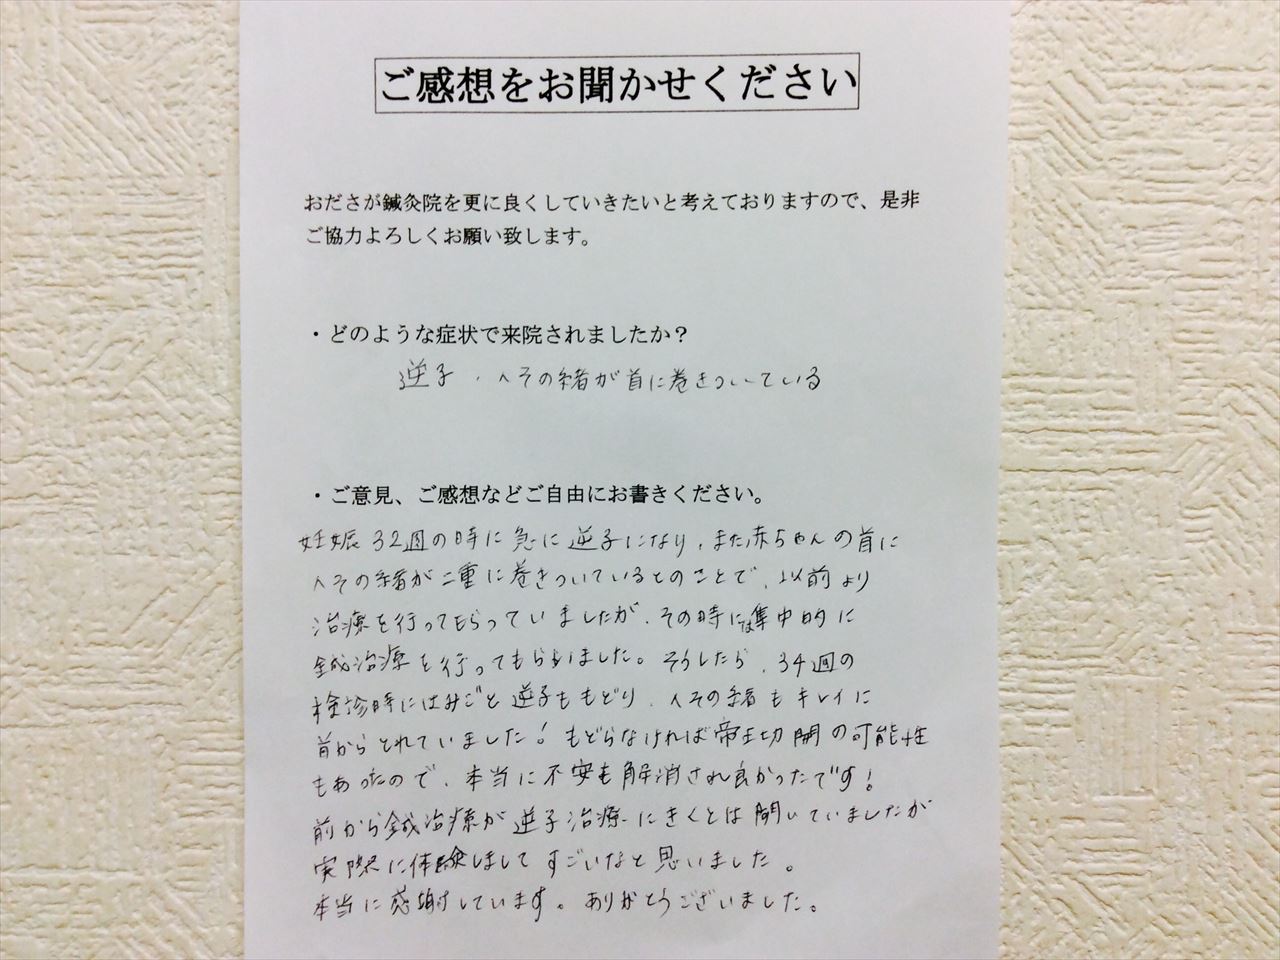 ご感想をお聞かせください
おださが鍼灸院を更に良くしていきたいと考えておりますので、是非
ご協力よろしくお願い致します。
・どのような症状で来院されましたか？
逆子・へその緒が首に巻きついている
・ご意見、ご感想などご自由にお書きください。
妊娠32週の時に急に逆子になり、また赤ちゃんの首に
へその緒が二重に巻きついているとのことで、以前より
治療を行ってもらっていましたが、その時には集中的に
鍼治療を行ってもらいました。そうしたら、34週の
検診時にはみごと逆子ももどり、へその緒もキレイに
首からとれていました！もどらなければ帝王切開の可能性
もあったので、本当に不安も解消され良かったです！
前から鍼治療が逆子治療にきくとは聞いていましたが
実際に体験しましてすごいなと思いました。
本当に感謝しています。ありがとうございました。